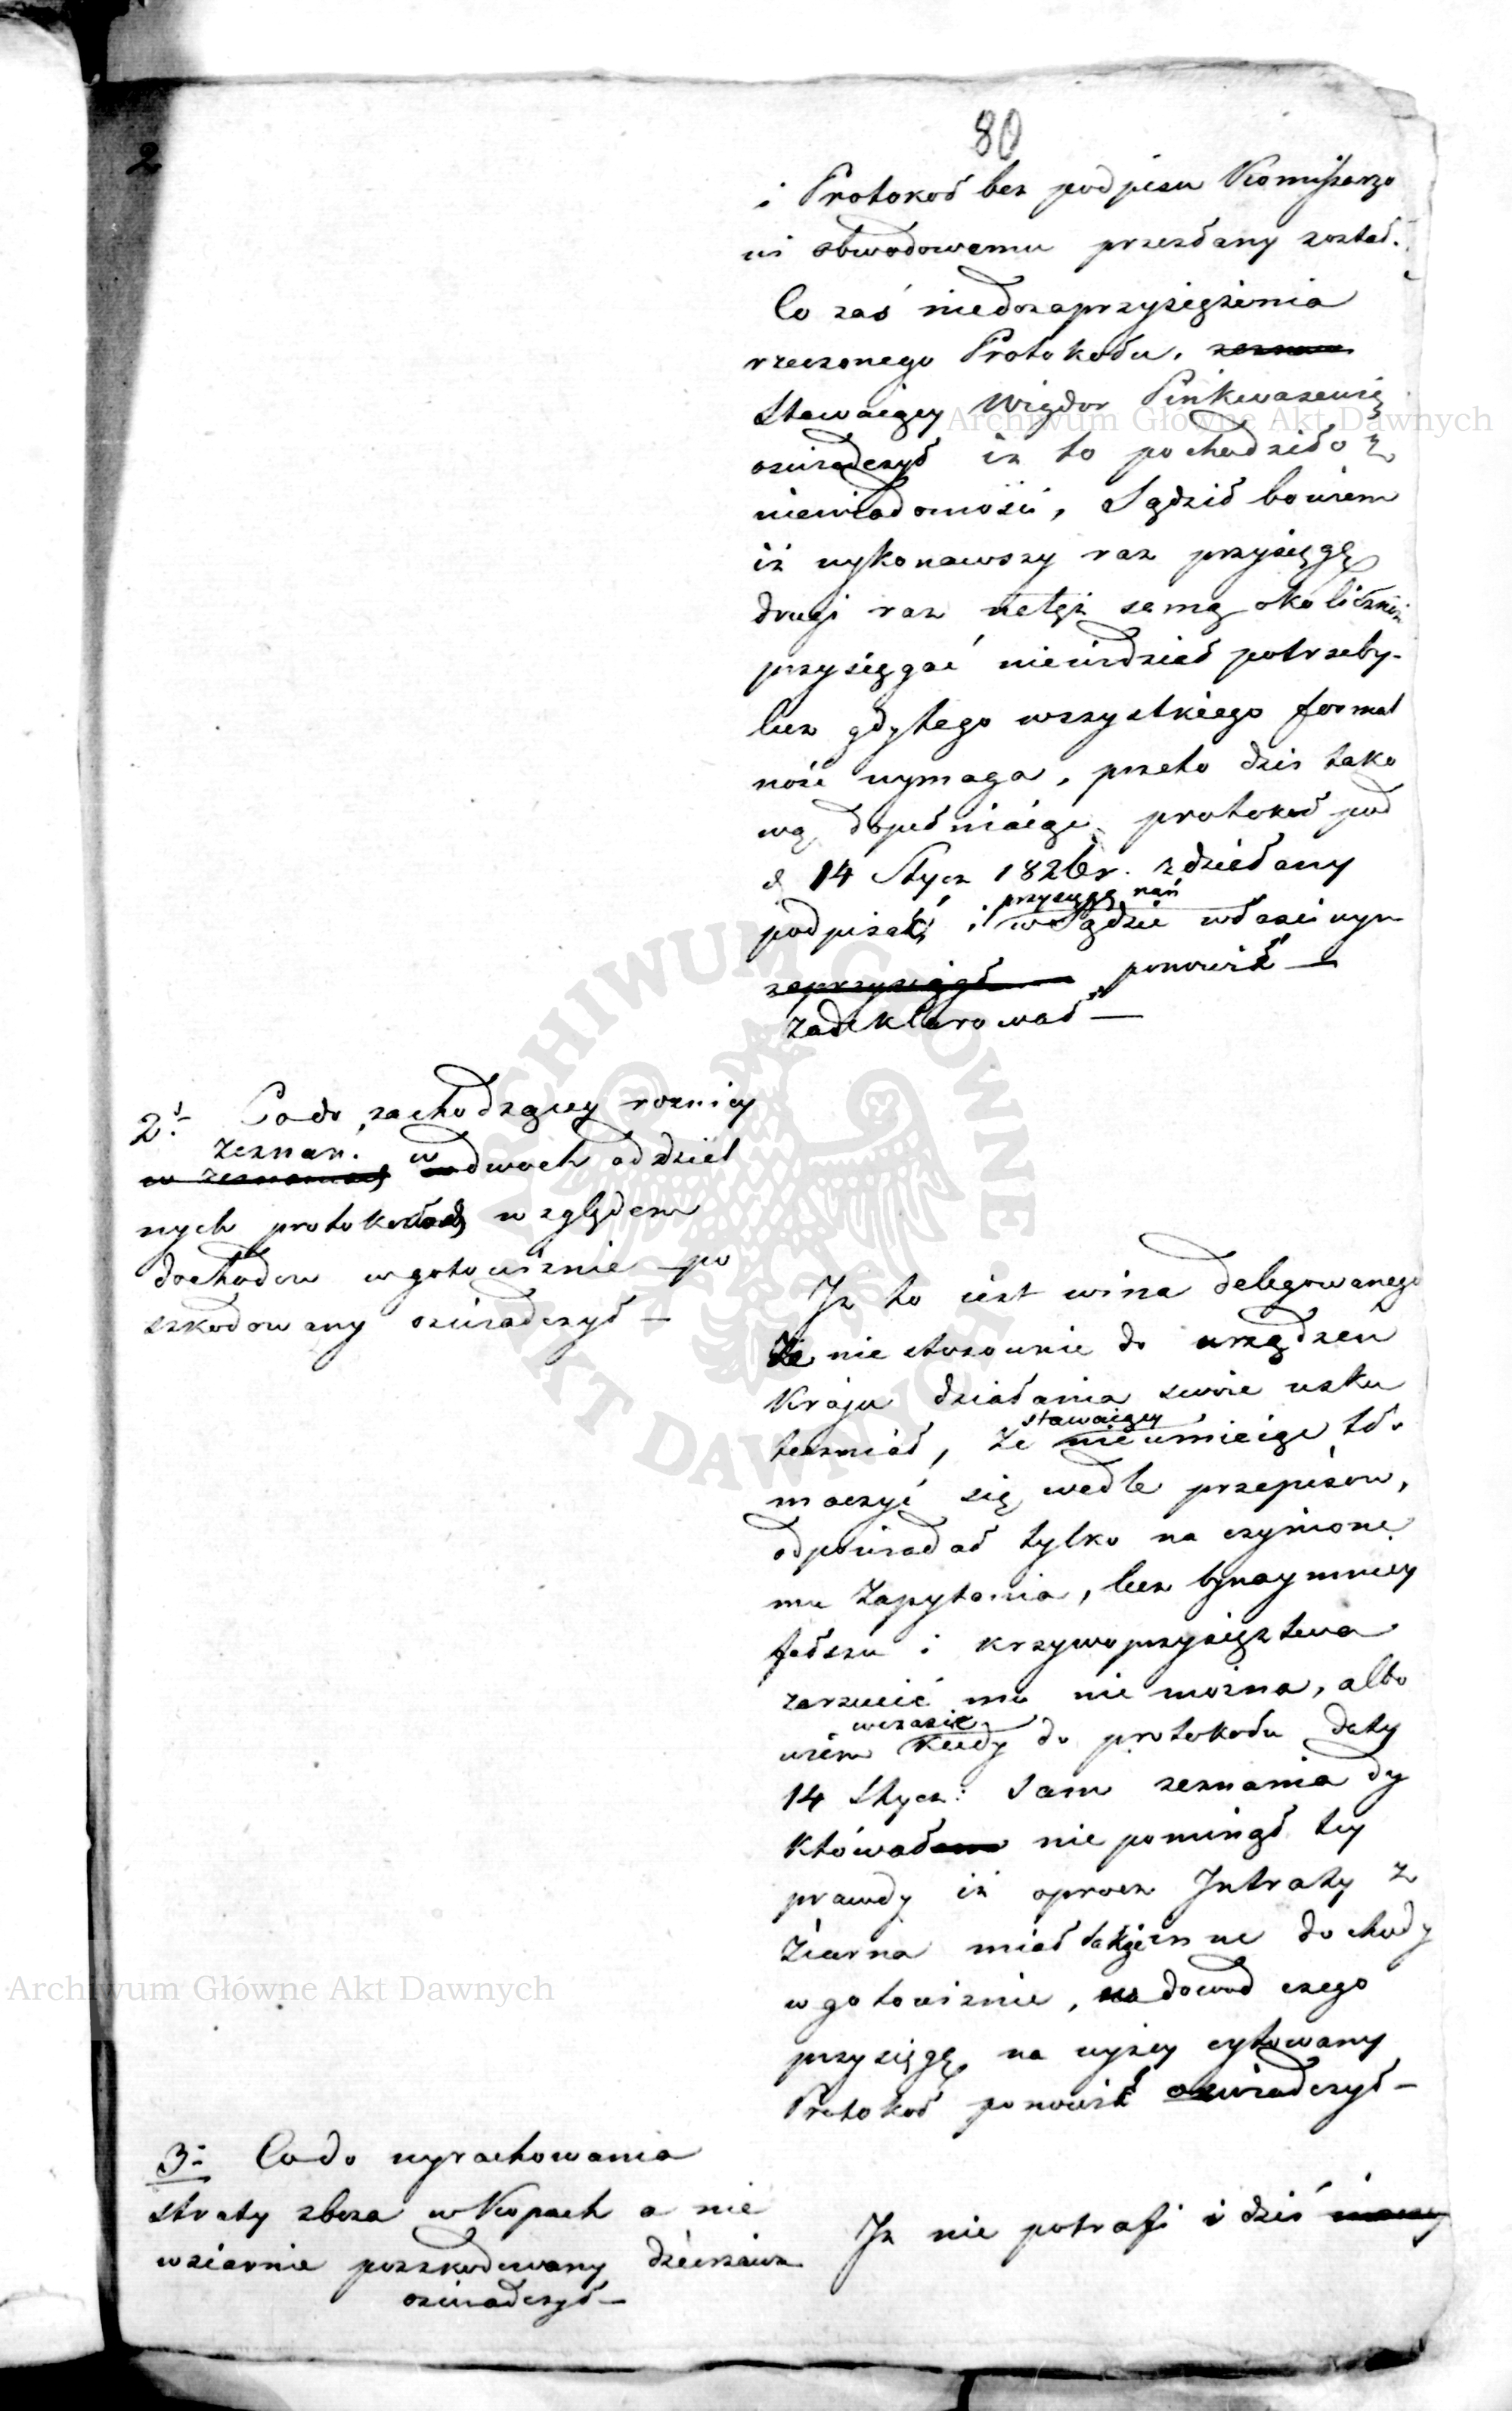 2
80
i Protokoł bez podpisu Kommissarzo
wi obwodowemu przesłany został.
Co zaś niedozaprzysiężenia
rzeczonego Protokołu, zeznaw
Stawaiący Wigdor Pinkwasewic
oświadczył iż to pochodziło z
niewiadomości, Sądził bowiem
iż wykonawszy raz przysięgę
drugi raz natęż samą okoliczność
przysięgać niewidział potrzeby-
lecz gdy tego wszystkiego formal
ność wymaga, przeto dziś tako
wą dopełniaiąc, protokoł pod
d 14 Stycz 1826r. zdziełany
przysięgę nań
podpisał, i w Sądzie właściwym
zaprzysiągł ponowić —
zadeklarował —
2. Co do zachodzącey roznicy
zeznań. w
w zeznaniach dwoch oddziel
nych protokołach względem
dochodow w gotowiznie po
szkodowany oświadczył —
Iż to iest wina delegowanego
że nie stosownie do urządzeń
Kraju działania swoie usku
stawaiący
teczniał, że nieumieiąc tło
maczyć się wedle przepisow,
odpowiadał tylko na czynione
mu zapytania, lecz bynaymniey
fałszu i krzywoprzysięztwa
zarzucić mu nie można, albo
wczasie
wiem kiedy do protokołu daty
14 Stycz: Sam zeznania dy
któwał nie pominął tey
prawdy iż oprocz Intraty z
ziarna miał także inne dochody
w gotowiznie, na dowod czego
przysięgę na wyżey cytowany
Protokoł ponowić oświadczył —
3. Co do wyrachowania
straty zboża w Kopach a nie
w ziarnie poszkodowany dzierżawca
oświadczył —
Iż nie potrafi i dziś inaczey
Archiwum Główne Akt Dawnych
Archiwum Główne Akt Dawnych
ARCHIWUM GŁÓWNE AKT DAWNYCH